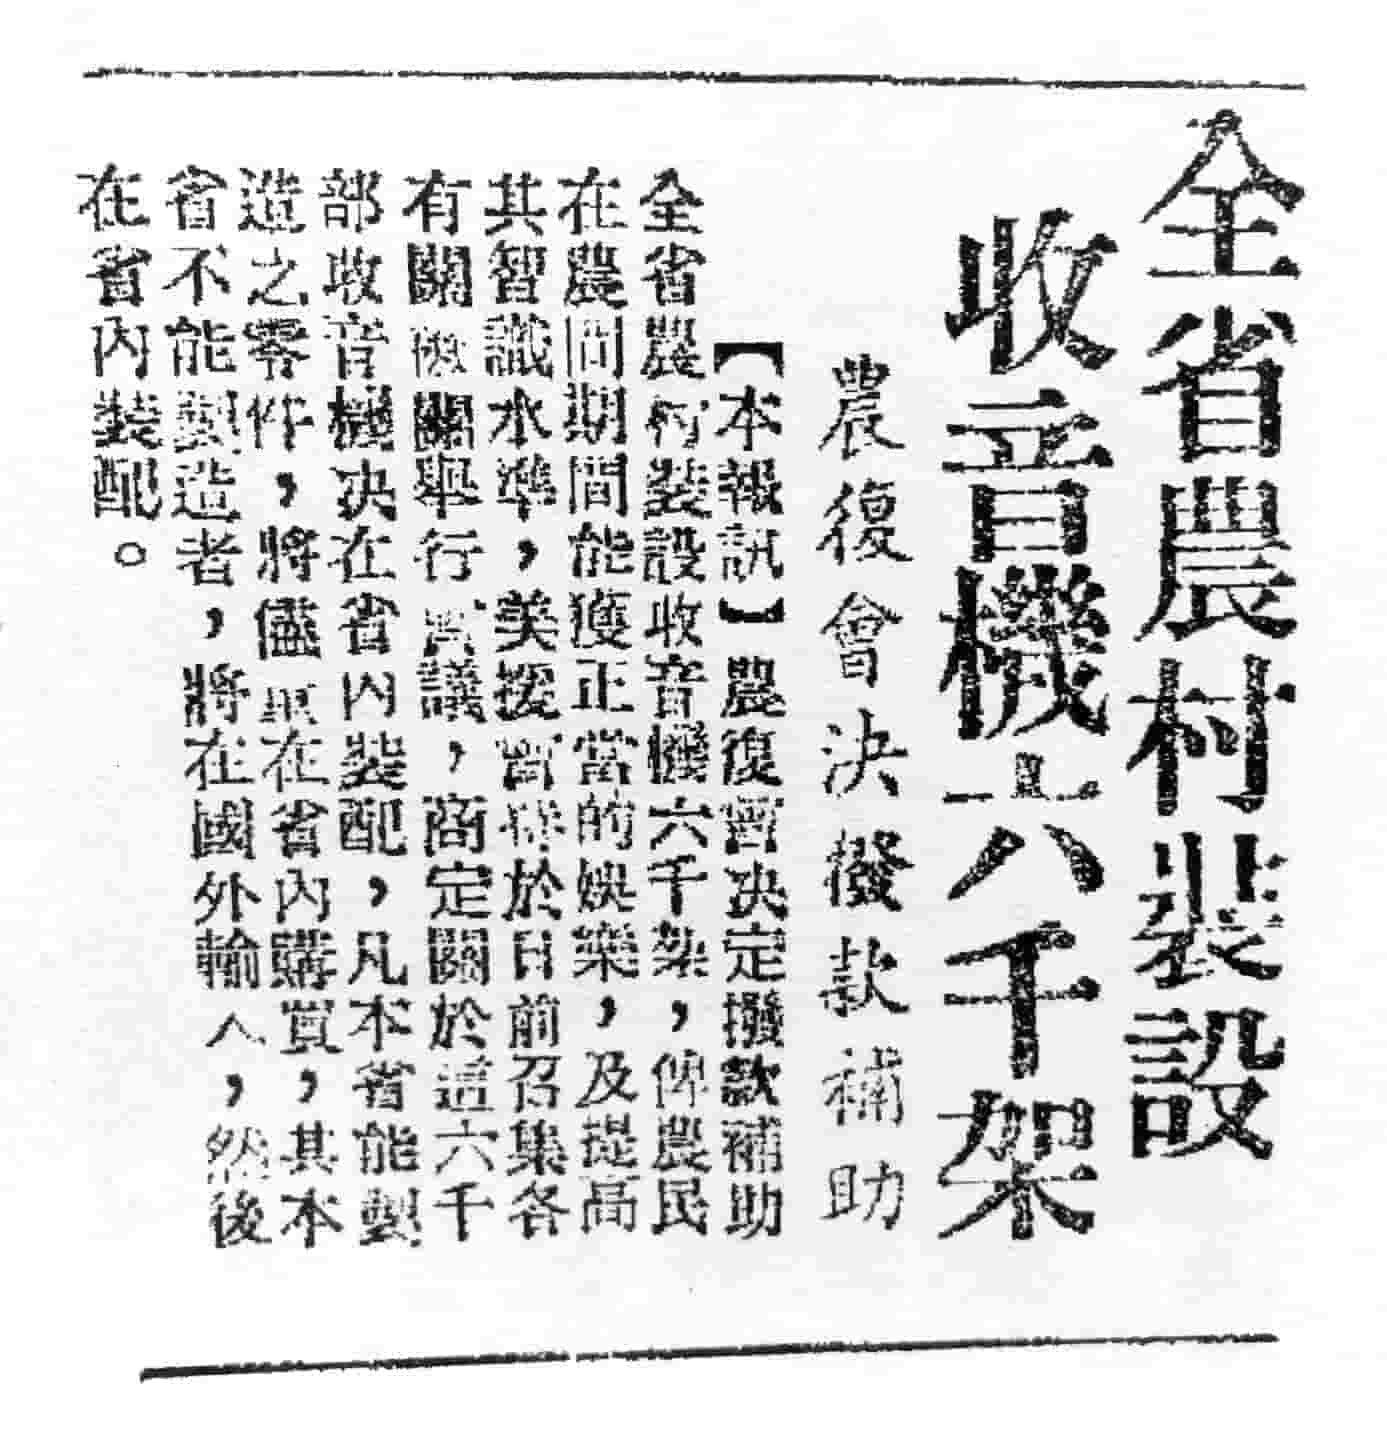 全省農村裝設
收音機六千架
農復會決撥款補助
【本報訊】農復會决定撥款補助
全省農村裝設收音機六千架，俾農民
在農閒期間能獲正當的娛樂，及提高
其智識水準，美援會於日前召集各
有關機關舉行會議，商定關於這六千
部收音機决在省內裝配，凡本省能製
造之零件，將儘量在省內購買，其本
省不能製造者，將在國外輸入，然後
在省內裝配。